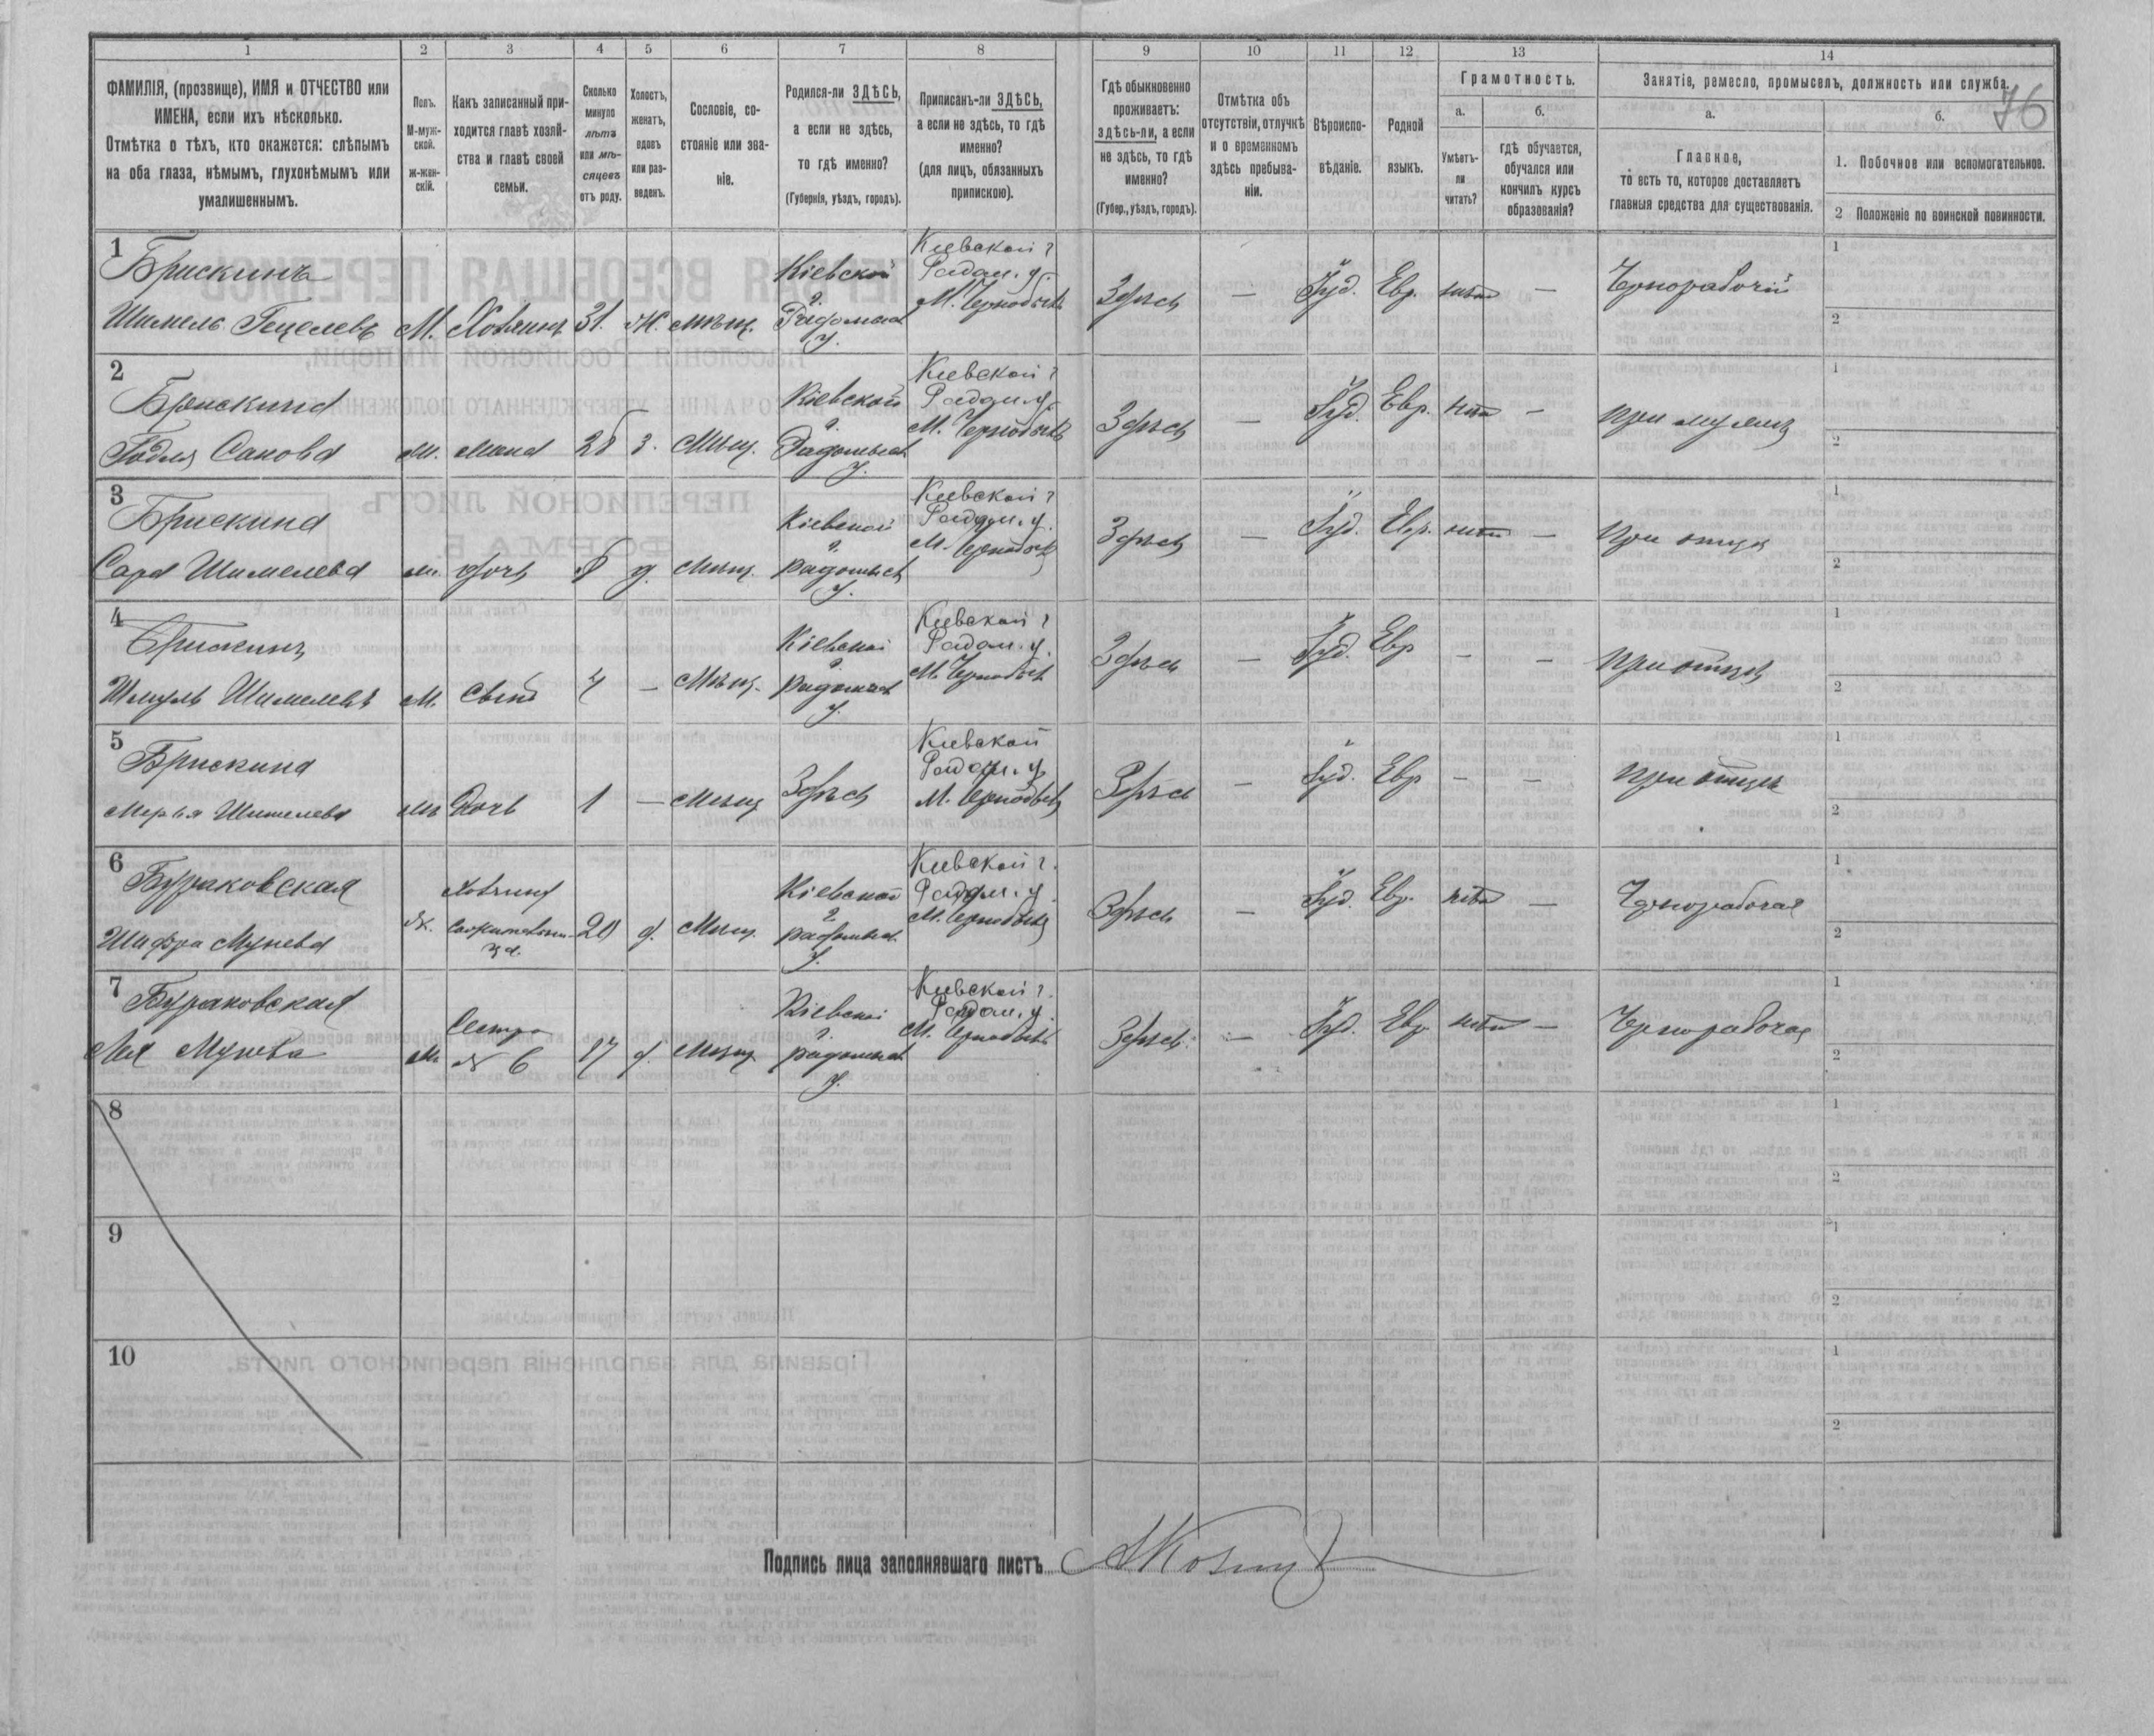 1 2 3 4 5 6 7 8 9 10 11 12 13 14
ФАМИЛІЯ, (прозвище), ИМЯ и ОТЧЕСТВО или
ИМЕНА, если ихъ нѣсколько.
Отмѣтка о тѣхъ, кто окажется: слѣпымъ
на оба глаза, нѣмымъ, глухонѣмымъ или
умалишеннымъ.
Полъ.
М-муж-
ской.
ж-жен-
скій.
Какъ записанный при-
ходится главѣ хозяй-
ства и главѣ своей
семьи.
Сколько
минуло
лѣтъ
или мѣ-
сяцевъ
отъ роду.
Холостъ,
женатъ,
вдовъ
или раз-
веденъ.
Сословіе, со-
стояніе или зва-
ніе.
Родился-ли ЗДѢСЬ,
а если не здѣсь,
то гдѣ именно?
(Губернія, уѣздъ, городъ).
Приписанъ-ли ЗДѢСЬ,
а если не здѣсь, то гдѣ
именно?
(для лицъ, обязанныхъ
припискою).
Гдѣ обыкновенно
проживаетъ:
здѣсь-ли, а если
не здѣсь, то гдѣ
именно?
(Губер., уѣздъ, городъ).
Отмѣтка объ
отсутствіи, отлучкѣ
и о временномъ
здѣсь пребыва-
ніи.
Вѣроиспо-
вѣданіе.
Родной
языкъ.
Грамотность.
а.
Умѣетъ-
ли
читать?
б.
гдѣ обучается,
обучался или
кончилъ курсъ
образованія?
Занятія, ремесло, промыселъ, должность или служба.
76
а.
Главное,
то есть то, которое доставляетъ
главныя средства для существованія.
б.
1. Побочное или вспомогательное.
2 Положеніе по воинской повинности.
1
Брискинъ
Шимель Гецелевъ М. Хозяинъ 31. Ж. мѣщ.
Кіевской
г.
Радомыс
у.
Кіевской г
Радом. у.
М. Чернобыль
Здѣсь — Іуд. Евр. — Чернорабочій
1
2
2
Брискина
м. жена 28 з. Мѣщ.
Кіевской
г.
Радомысл
у.
Кіевской г
Радом. у.
М. Чернобыль
Здѣсь — Іуд. Евр. — при мужѣ
1
2
3
Брискина
Сара Шимелева дочь д. мѣщ.
Кіевской
г.
Радомысл
у.
Кіевской г
Радом. у.
М. Чернобыль
Здѣсь — Іуд. Евр. — при отцѣ
1
2
4
Брискинъ
Шмуль Шимелевъ М. Сынъ 4 — Мѣщ.
Кіевской
г.
Радомысл
у.
Кіевской г
Радом. у.
М. Чернобыль
Здѣсь — Іуд. Евр — — при отцѣ
1
2
5
Брискина
Шимелева Дочь 1 — Мѣщ
Здѣсь
Кіевской
Радом. у
М. Чернобыль
Здѣсь — Іуд. Евр — — при отцѣ
1
2
6
Бураковская
Шифра Мунева Ж. 20 д. Мѣщ.
Кіевской
г
Радомысл
у.
Кіевской г.
Радом. у
М. Чернобыль
Здѣсь — Іуд. Евр. — Чернорабочая
1
2
7
Бураковская
Лея Мунева
Сестра
№ 6 17 д. Мѣщ
Кіевской
г.
Радомысл
у.
Кіевской г.
Радом. у.
М. Чернобыль
Здѣсь — Іуд. Евр. — Чернорабочая
1
2
8
1
2
9
1
2
10
1
2
Подпись лица заполнявшаго листъ